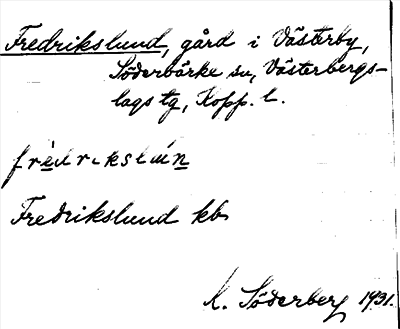 Fredrikslund, gård i Västerby,
Söderbärke sn, Västerbergs-
lags tg, Kopp. l.
frèdrekslún
Fredrikslund kb
K. Söderberg 1931.